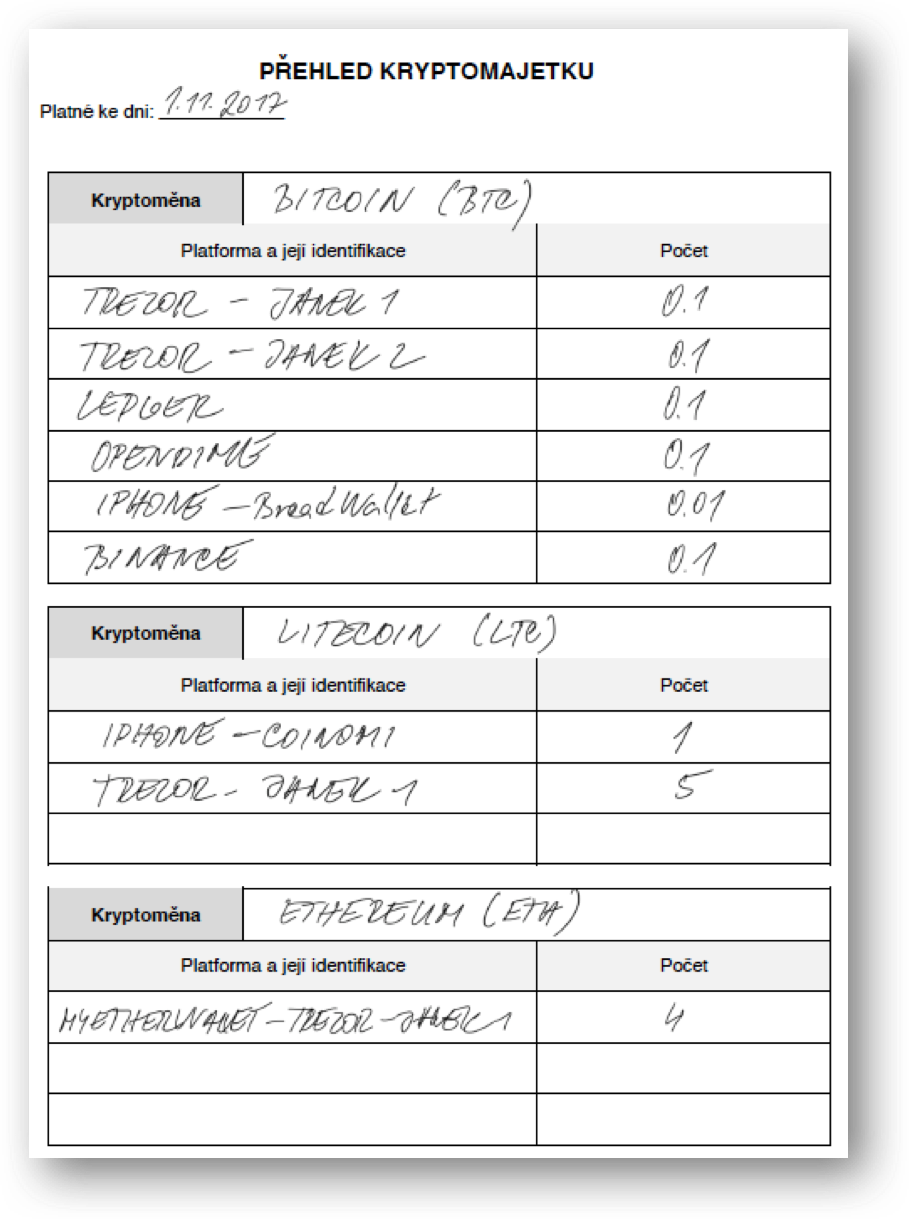 PŘEHLED KRYPTOMAJETKU
Platné ke dni: 1.11.2017
Kryptoměna BITCOIN (BTC)
Platforma a její identifikace Počet
TREZOR - JANEK 1 0.1
TREZOR - JANEK 2 0.1
LEDGER 0.1
OPENDIME 0.1
IPHONE - BreadWallet 0.01
BINANCE 0.1
Kryptoměna LITECOIN (LTC)
Platforma a její identifikace Počet
IPHONE - COINOMI 1
TREZOR - JANEK 1 5
Kryptoměna ETHEREUM (ETH)
Platforma a její identifikace Počet
MYETHERWALLET - TREZOR - JANEK 1 4